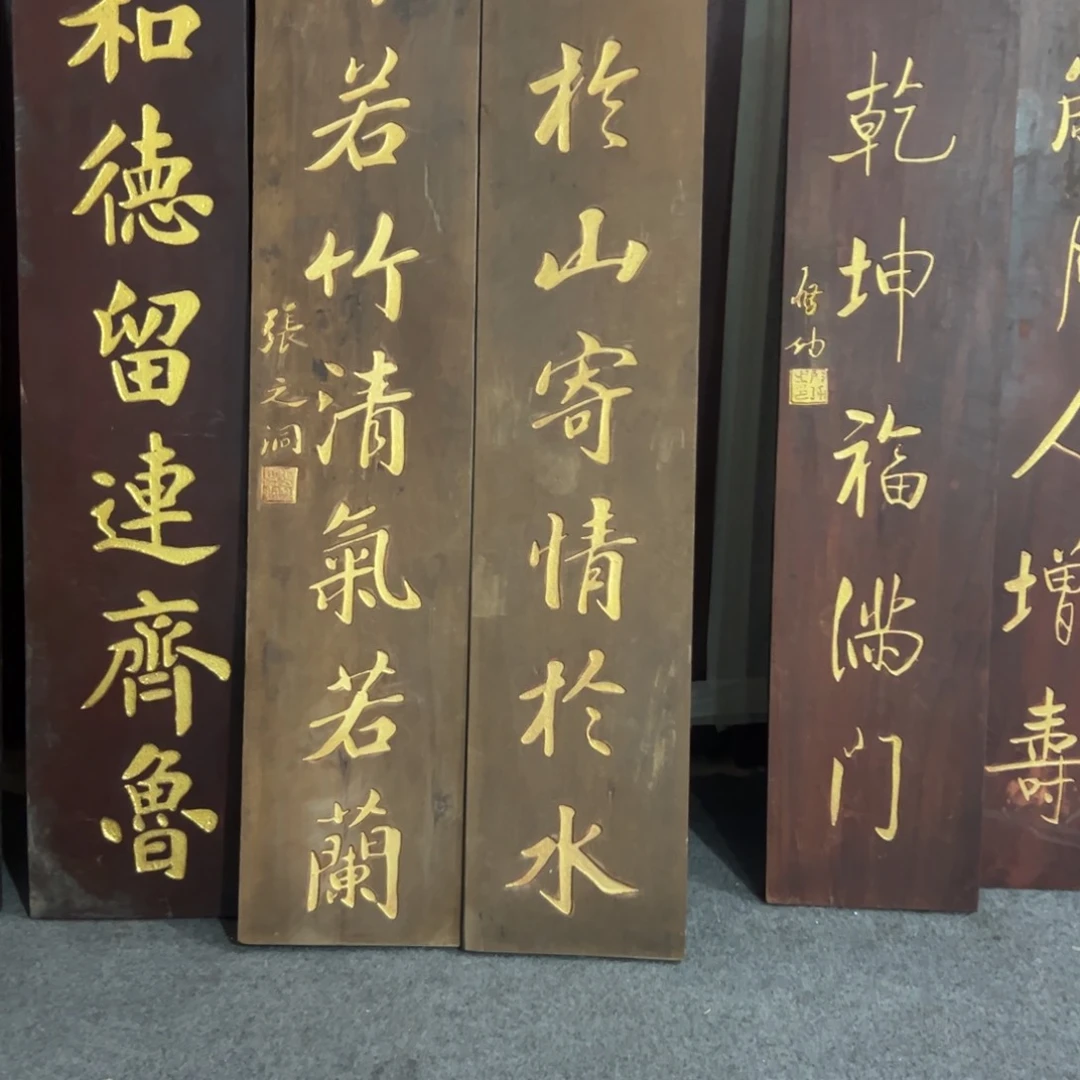 和德留連齊魯
若竹清氣若蘭
張之洞
於山寄情於水
乾坤福满门
啓功
人增壽